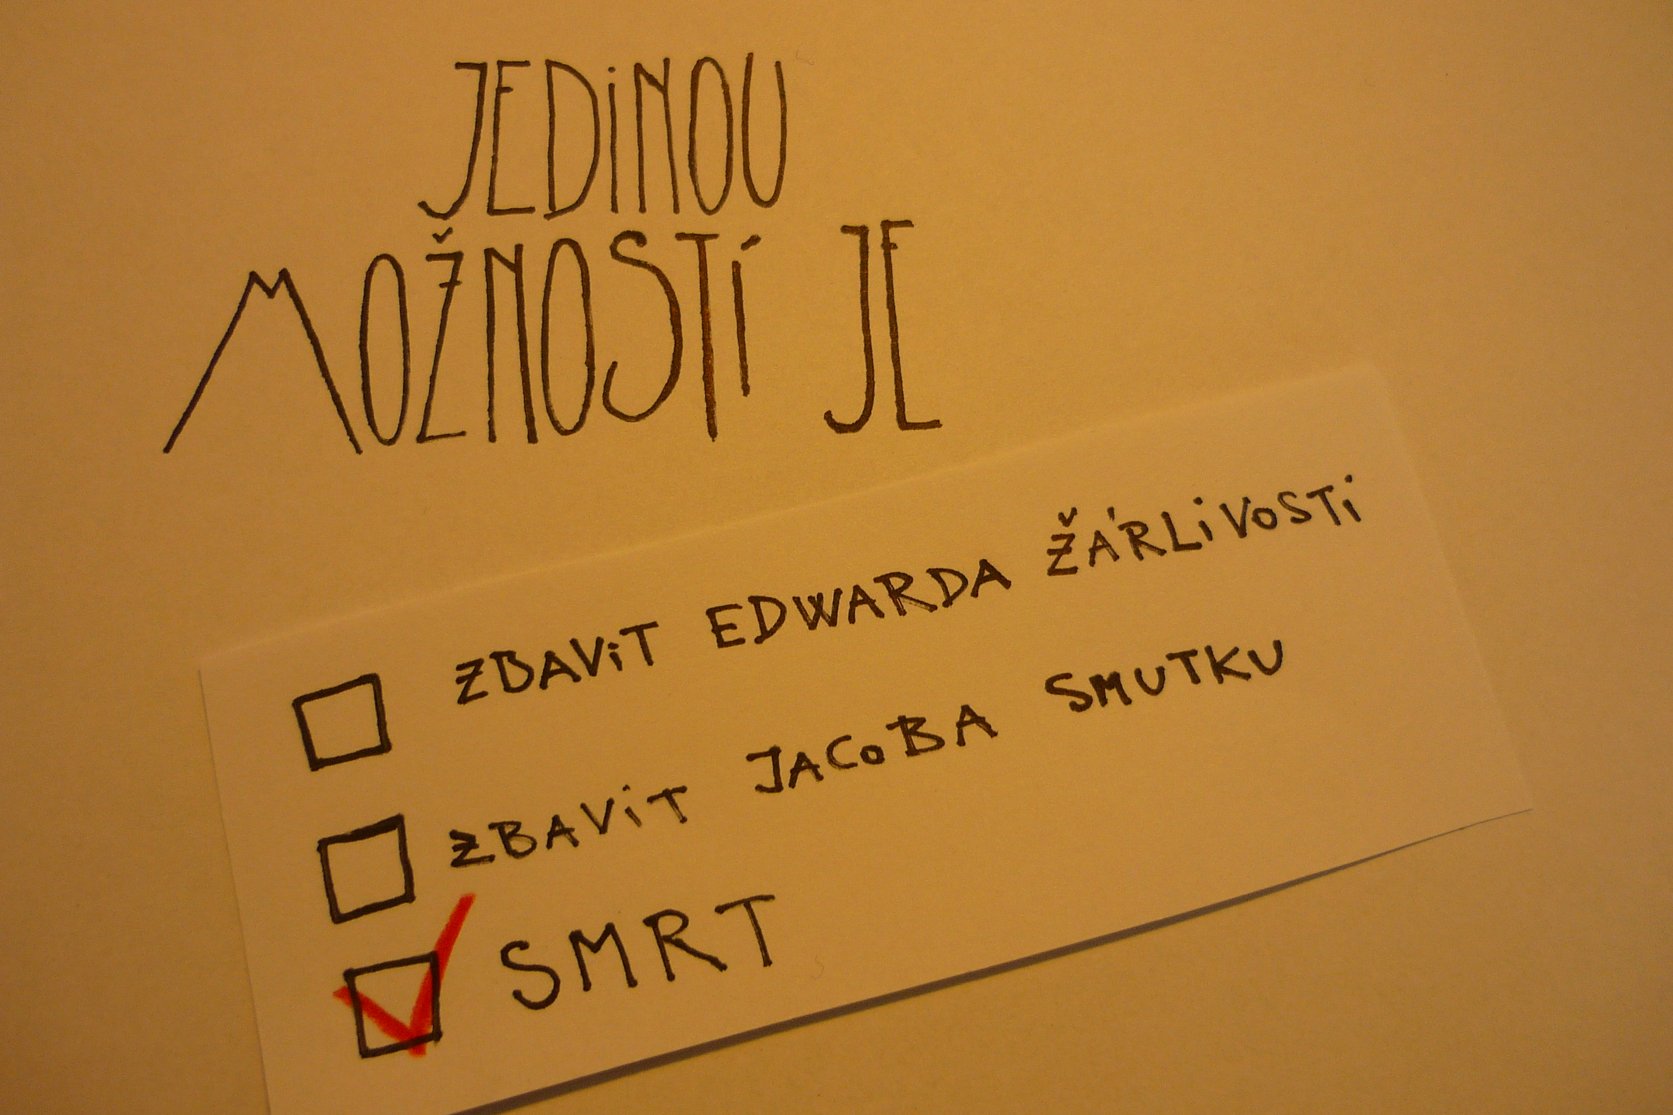 JEDiNOU
MOŽNOSTÍ JE
ZBAViT EDWARDA ŽÁRLiVOSTi
ZBAViT JACoBA SMUTKU
SMRT